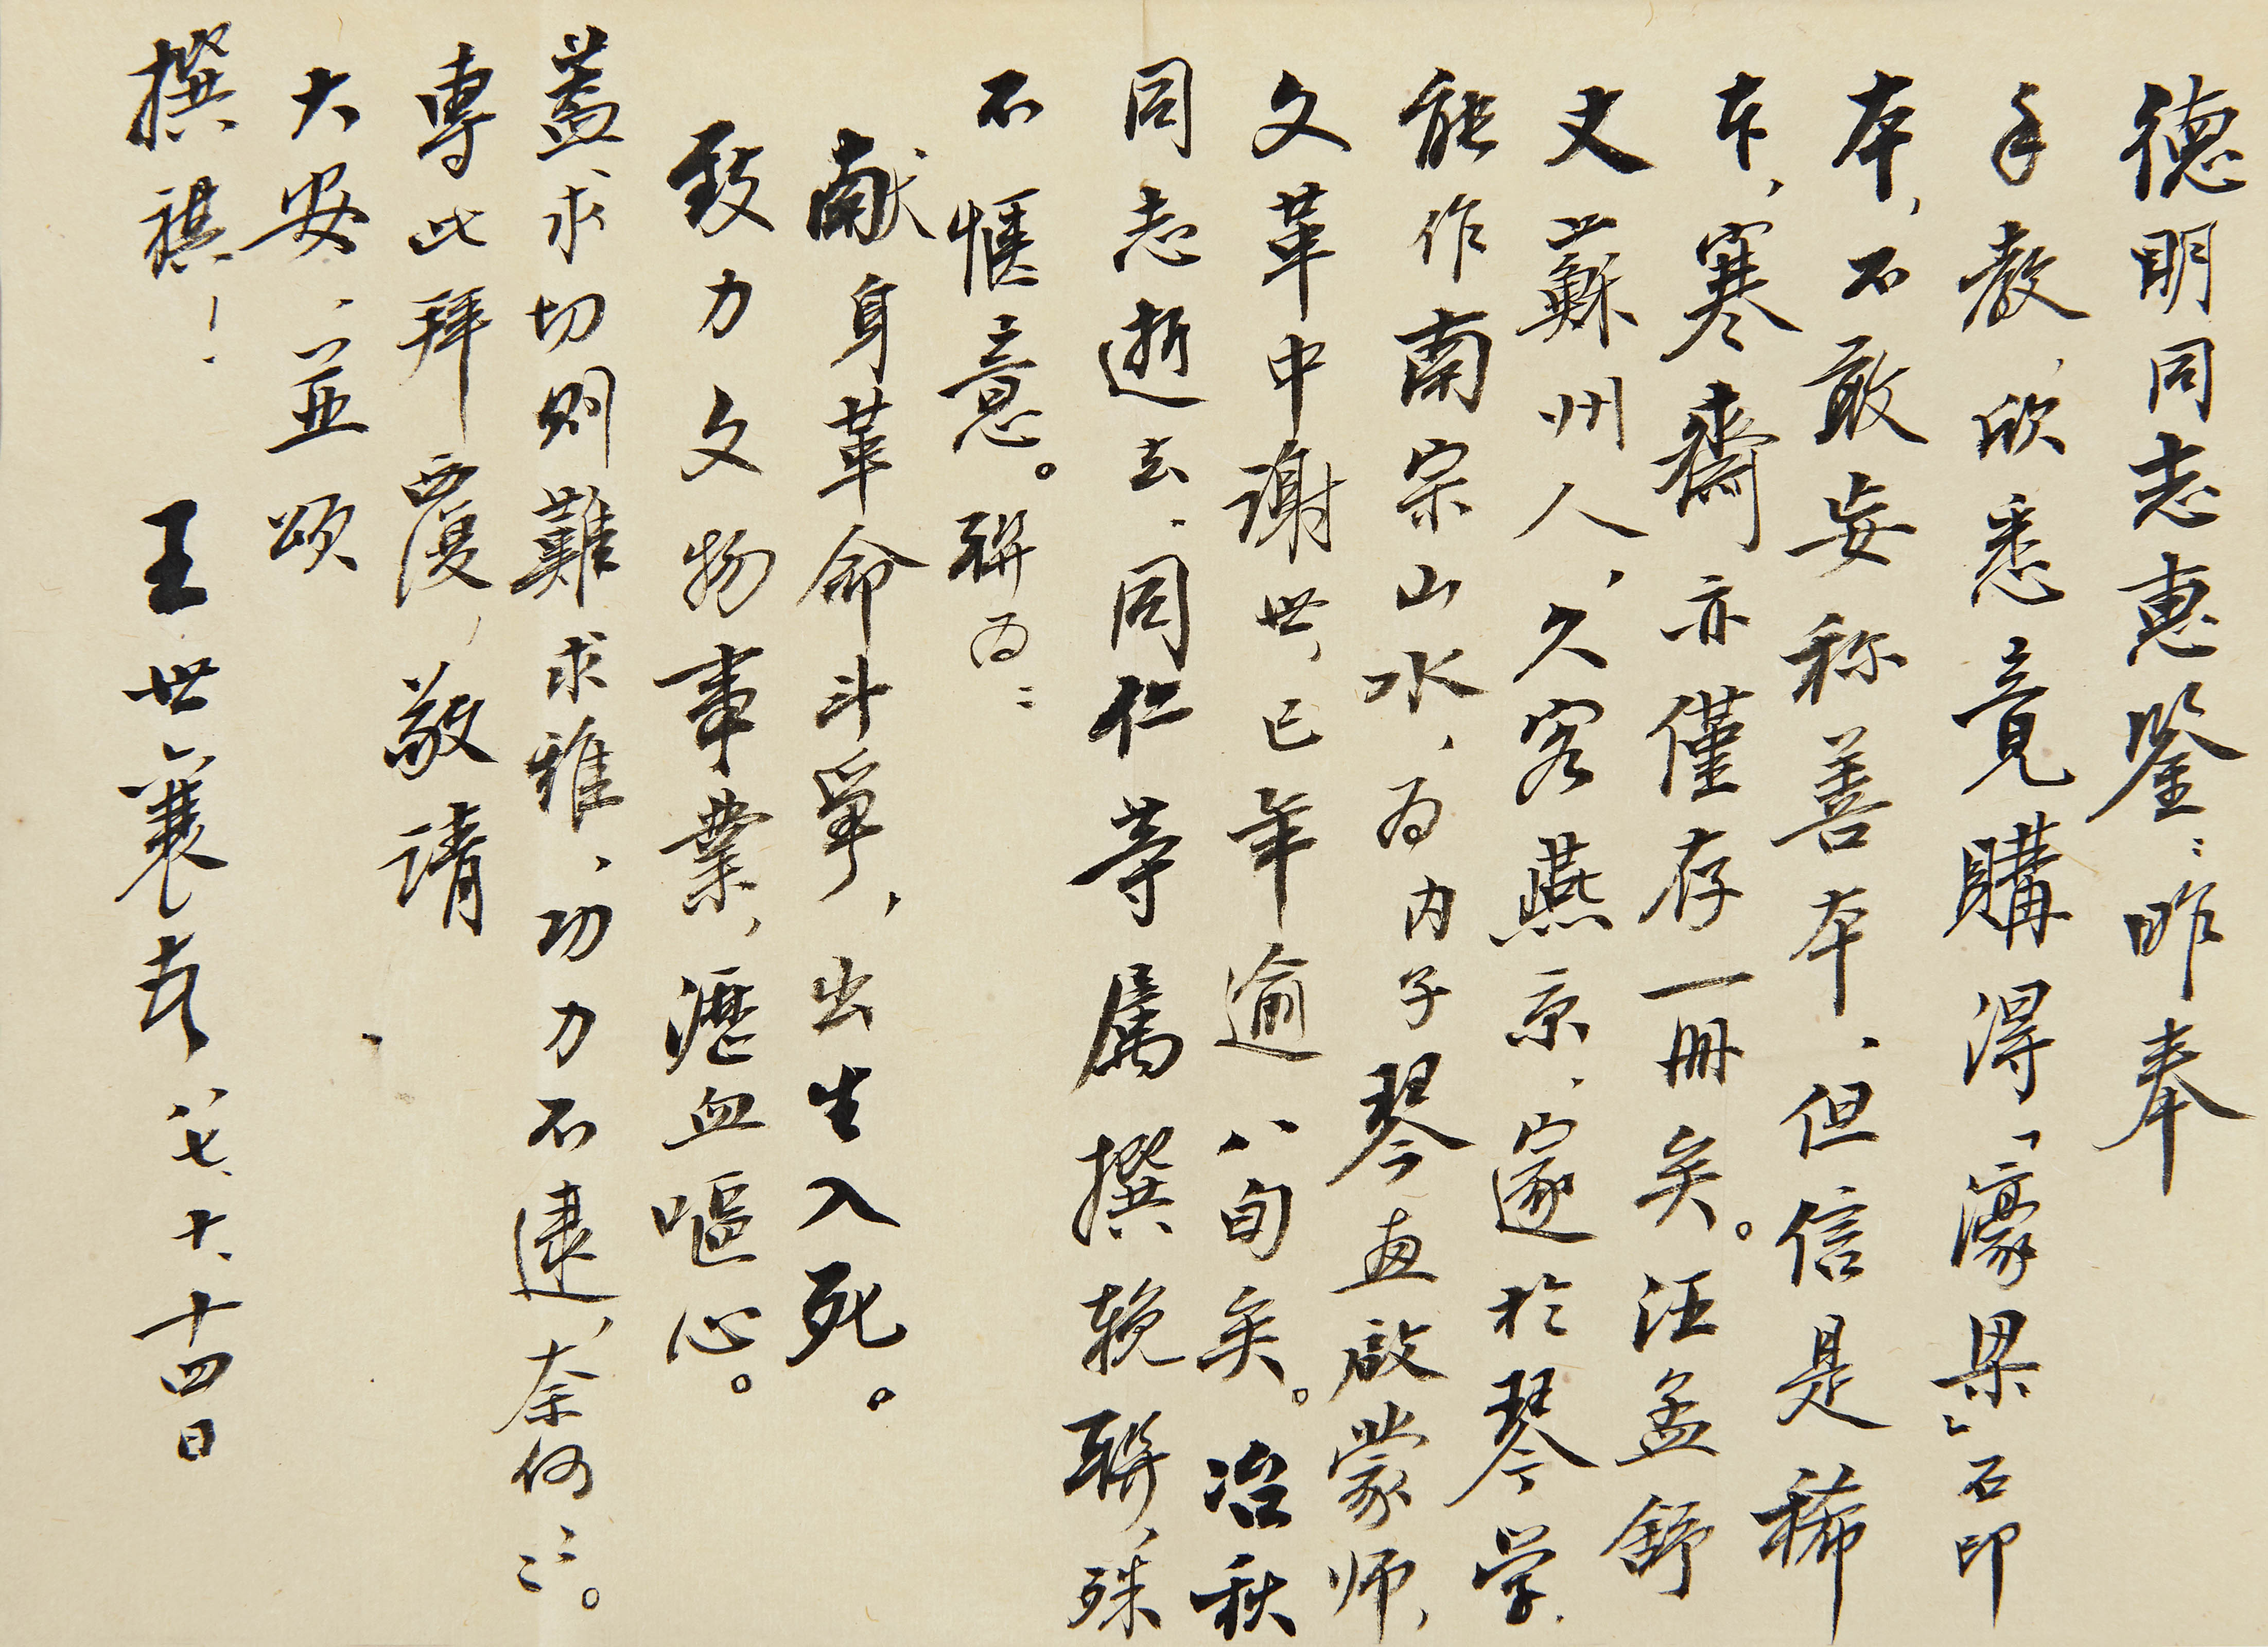 德明同志惠鑒：昨奉
手教，欣悉竟購得「濠梁」石印
本，不敢妄称善本，但信是稀
本，寒齋亦僅存一冊矣。汪孟舒
丈蘇州人，久客燕京，邃於琴学，
能作南宗山水，为内子琴画啟蒙师，
文革中谢世，已年逾八旬矣。冶秋
同志逝去，同仁等属撰輓聯，殊
不愜意。聯为：
献身革命斗爭，出生入死。
致力文物事業，瀝血嘔心。
蓋求切则難求雅，功力不逮，奈何〻〻。
專此拜覆，敬请
大安，並颂
撰祺！ 王世襄上 八七、十、十四日